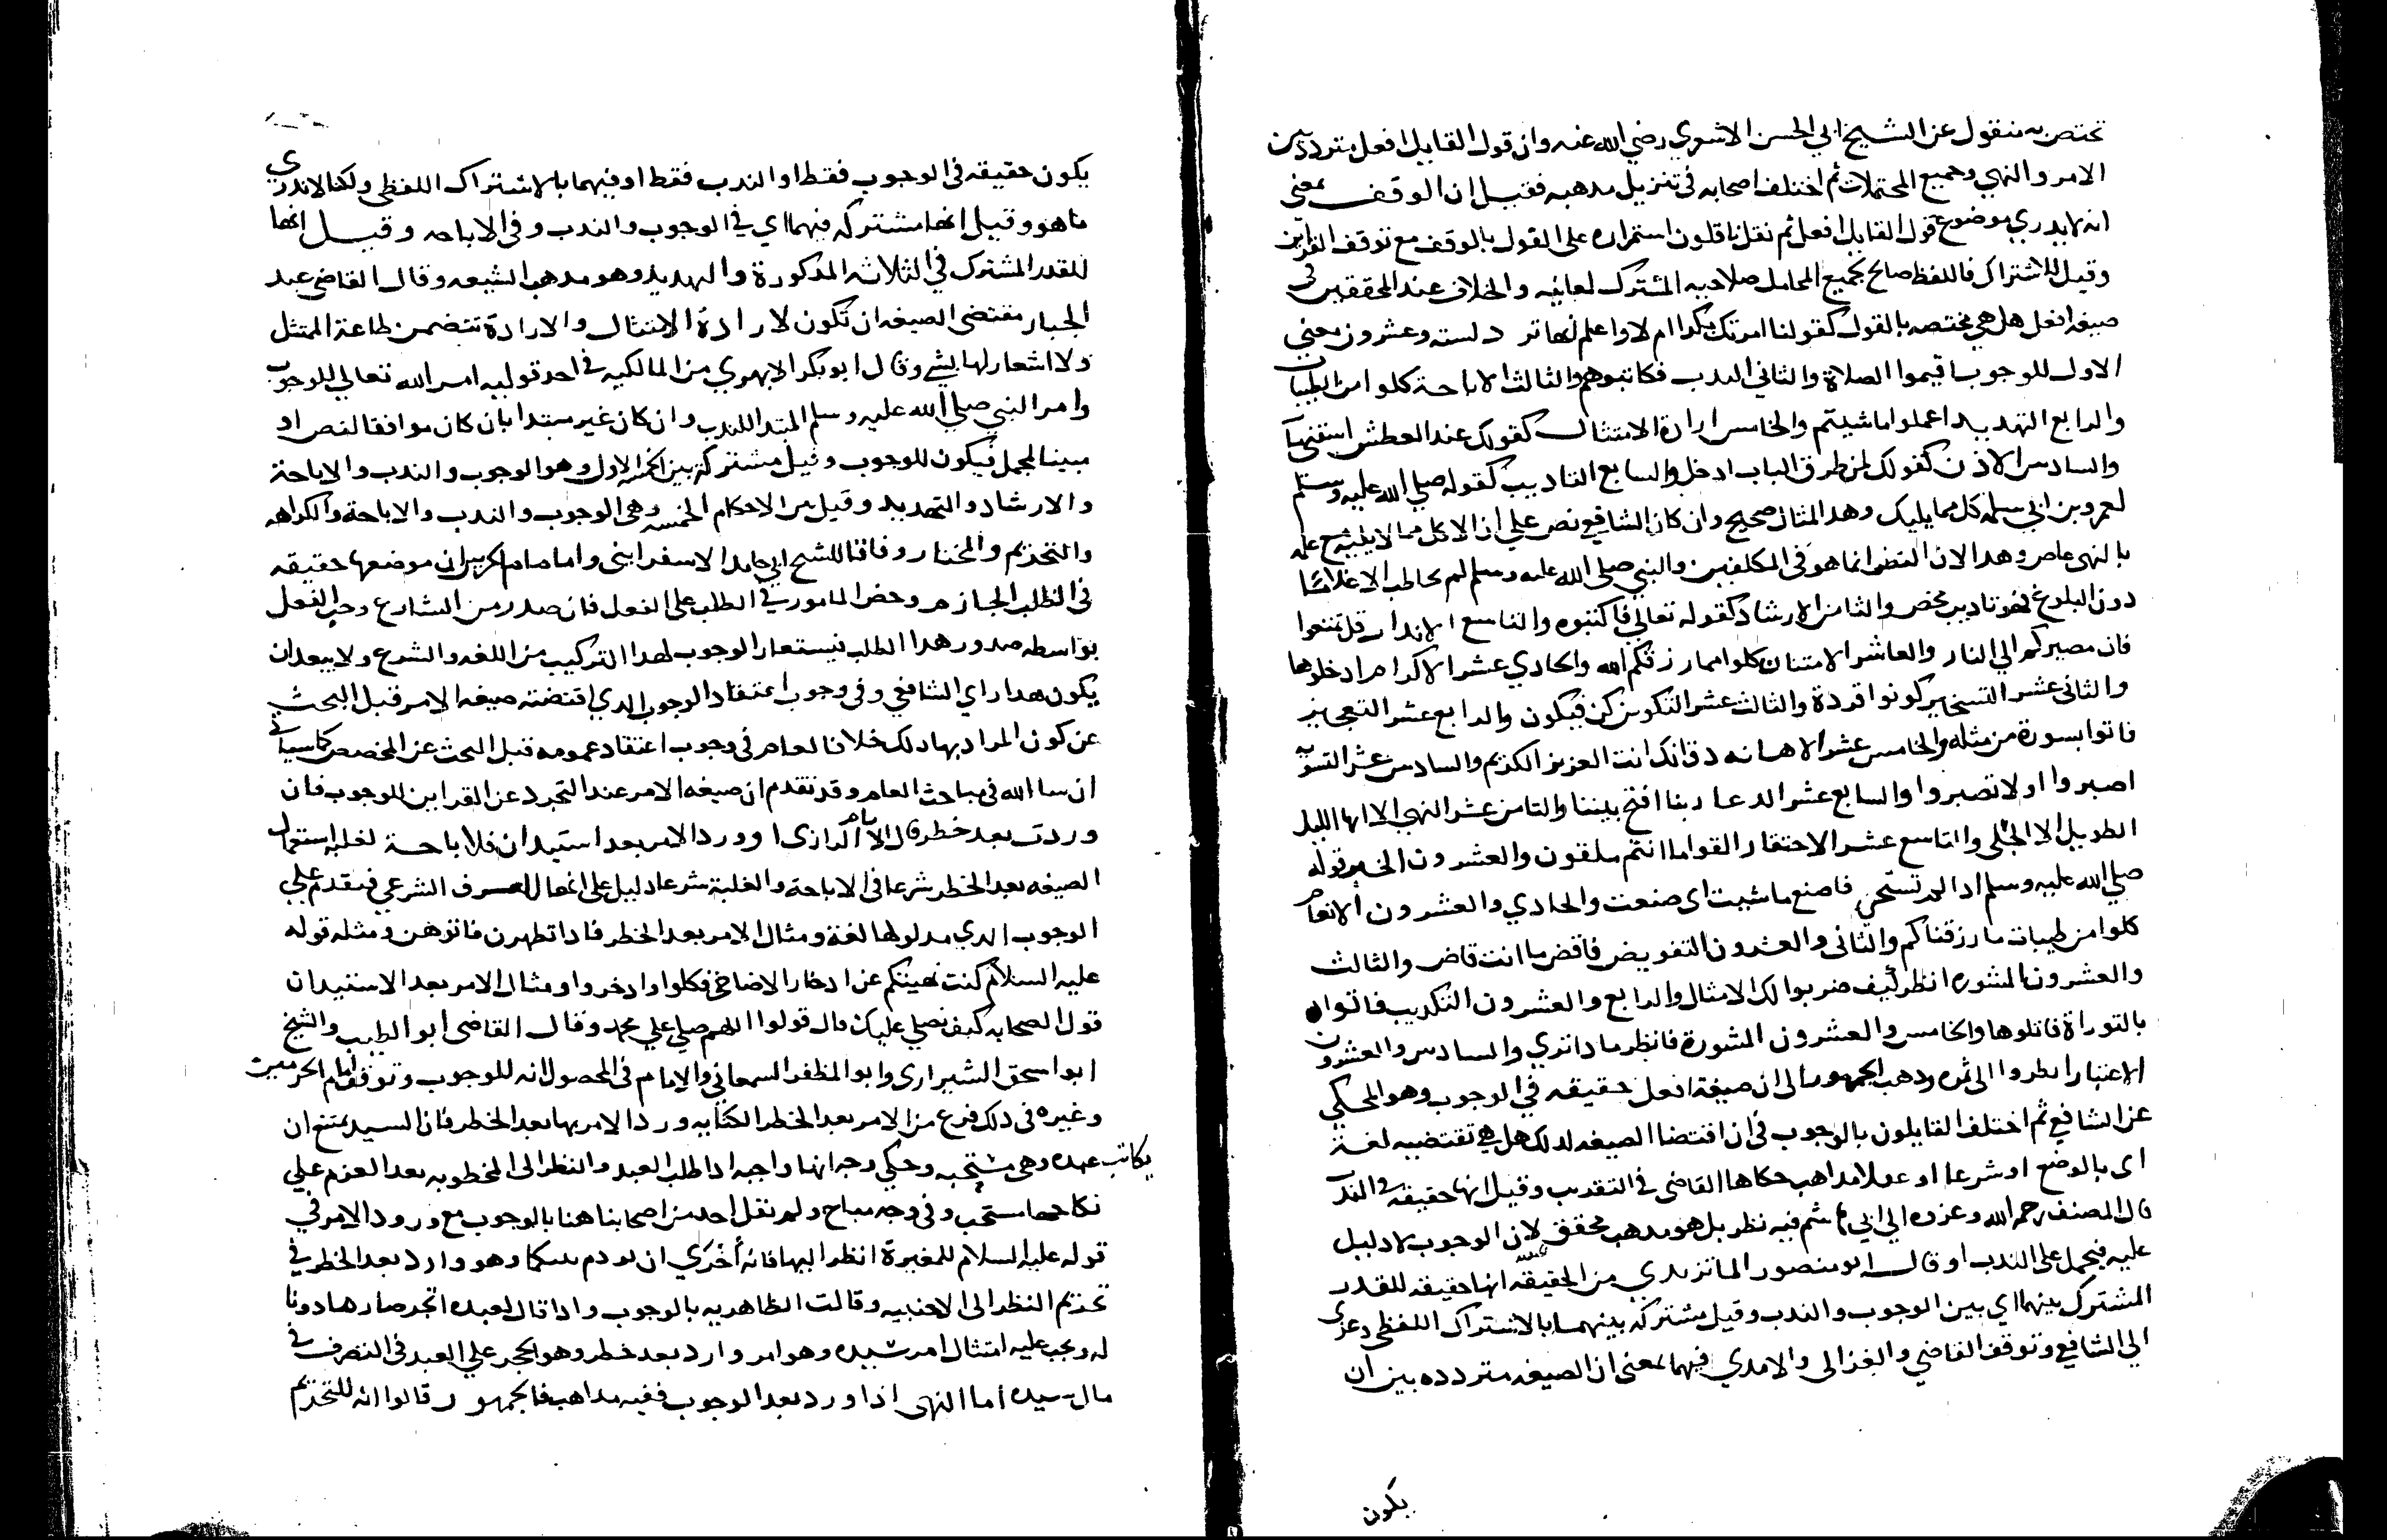 تختص به منقول عن الشيخ ابي الحسن الاشعري رضي الله عنه وان قول القايل افعل متردد بين
الامر والنهي وجميع المحتملات ثم اختلف اصحابه في تنزيل مدهبه فقيل ان الوقف بمعنى
انه لا يدري موضوع قول القايل افعل ثم نقل ناقلون استمراره على القول بالوقف مع توقف القراين
وقيل للاشتراك فاللفظ صالح لجميع المحامل صلاحيه المشترك لمعانيه والخلاف عند المحققين في
صيغه افعل هل هي مختصه بالقول كقولنا امرتك بكدا ام لا واعلم انها تر د لسته وعشرون معني
الاول للوجوب اقيموا الصلاة والثاني الندب فكاتبوهم والثالث الاباحة كلوا من الطيبات
والرابع التهديد اعملوا ما شيتم والخامس ارادة الامتثال كقولك عند العطش اسقني ما
والسادس الاذن كقولك لمن طرق الباب ادخل والسابع التاديب كقوله صلي الله عليه وسلم
لعمرو بن ابي سلمه كل مما يليك وهدا المثال صحيح وان كان الشافعي نص علي ان الاكل مما لا يليه مع علمه
بالنهي عاص وهدا لان النص انما هو في المكلفين والنبي صلى الله عليه وسلم لم يخاطب الا غلاما
دون البلوغ فهو تاديب محض والثامن الارشاد كقوله تعالي فاكتبوه والتاسع الاندار قل تمتعوا
فان مصيركم الي النار والعاشر الامتنان كلوا مما رزقكم الله والحادي عشر الاكرام ادخلوها
والثاني عشر التسخير كونوا قردة والثالث عشر التكوين كن فيكون والرابع عشر التعجيز
فاتوا بسورة من مثله والخامس عشر الاهانه دق انك انت العزيز الكريم والسادس عشر التسويه
اصبروا اولا تصبروا والسابع عشر الدعا ربنا افتح بيننا والثامن عشر النهي الا ايها الليل
الطويل الا انجلي والتاسع عشر الاحتقار القوا ما انتم ملقون والعشرون الخبر قوله
صلي الله عليه وسلم ادا لم تستحي فاصنع ما شيت اى صنعت والحادي والعشرون الانعام
كلوا من طيبات ما رزقناكم والثاني والعشرون التفويض فاقض ما انت قاض والثالث
والعشرون المشوره انظر كيف ضربوا لك الامثال والرابع والعشرون التكديب فاتوا
بالتوراة فاتلوها والخامس والعشرون المشورة فانظر مادا تري والسادس والعشرون
الاعتبار انظروا الى ثمره ودهب الجمهور الى ان صيغة افعل حقيقه في الوجوب وهو المحكي
عن الشافعي ثم اختلف القايلون بالوجوب في ان اقتضا الصيغه لدلك هل هي تقتضيه لغة
اى بالوضع او شرعا او عقلا مداهب حكاها القاضي في التقريب وقيل انها حقيقه في الندب
قال المصنف رحمه الله وعزوه الي ابي هاشم فيه نظر بل هو مدهب محقق لان الوجوب لا دليل
عليه فيحمل على الندب او قال ابو منصور الماتريدي من الحنفيه انها حقيقه للقدر
المشترك بينهما اي بين الوجوب والندب وقيل مشتركه بينهما بالاشتراك اللفظي وعزي
الي الشافعي وتوقف القاضي والغزالى والامدي فيهما بمعنى ان الصيغه متردده بين ان
يكون
يكون حقيقه في الوجوب فقط او الندب فقط او فيهما بالاشتراك اللفظي ولكنا لا ندري
ما هو وقيل انها مشتركه فيهما اي في الوجوب والندب وفي الاباحه وقيل انها
للقدر المشترك في الثلاثه المدكورة والتهديد وهو مدهب الشيعه وقال القاضي عبد
الجبار مقتضى الصيغه ان تكون لارادة الامتثال والارادة تتضمن طاعة الممتثل
ولا اشعار لها بشي وقال ابو بكر الابهري من المالكيه في احد قوليه امر الله تعالي للوجوب
وامر النبي صلي الله عليه وسلم المبتدا للندب وان كان غير مبتدا بان كان موافقا لنص او
مبينا لمجمل فيكون للوجوب وقيل مشتركة بين الخمسه الاول وهو الوجوب والندب والاباحة
والارشاد والتهديد وقيل من الاحكام الخمسه وهي الوجوب والندب والاباحة والكراهه
والتحريم والمختار وفاقا للشيخ ابي حامد الاسفرايني وامام الحرمين ان موضعها حقيقه
في الطلب الجازم وحض المامور في الطلب على الفعل فان صدر من الشارع وجب الفعل
بواسطه صدور هدا الطلب فيستعار الوجوب لهدا التركيب من اللغه والشرع ولا يبعد ان
يكون هدا راي الشافعي وفي وجوب اعتقاد الوجوب الدي اقتضته صيغه الامر قبل البحث
عن كون المراد بها دلك خلاف العام في وجوب اعتقاد عمومه قبل البحث عن المخصص كما سياتي
ان سا الله في مباحث العام وقد تقدم ان صيغه الامر عند التجرد عن القراين للوجوب فان
وردت بعد حظر قال الامام الرازى او ورد الامر بعد استيدان فلاباحة لغلبه استعمال
الصيغه بعد الحظر شرعا في الاباحة والغلبة شرعا دليل على انتقال العرف الشرعي فيقدم علي
الوجوب الدي مدلولها لغة ومثال الامر بعد الحظر فادا تطهرن فاتوهن ومثله قوله
عليه السلام كنت نهيتكم عن ادخار الاضاحي فكلوا وادخروا ومثال الامر بعد الاستيدان
قول الصحابه كيف نصلي عليك قال قولوا اللهم صلي علي محمد وقال القاضي ابو الطيب والشيخ
ابو اسحق الشيرازى وابو المظفر السمعاني والامام في المحصول انه للوجوب وتوقف امام الحرمين
وغيره في دلك فرع من الامر بعد الحظر الكتابه ورد الامر بها بعد الحظر فان السيد يمتنع ان
يكاتب عبده وهي مستحبه وحكي وجه انها واجبه ادا طلب العبد والنظر الى المخطوبه بعد العزم علي
نكاحها مستحب وفي وجه مباح ولم نقل احد من اصحابنا هنا بالوجوب مع ورود الامر في
قوله عليه السلام للمغيرة انظر اليها فانه أحري ان يودم بينكما وهو وارد بعد الحظر في
تحريم النظر الى الاجنبيه وقالت الظاهريه بالوجوب وادا قال لعبده اتجر صار مادونا
له ويجب عليه امتثال امر سيده وهو امر وارد بعد حظر وهو الحجر علي العبد في التصرف في
مال سيده اما النهى اذا ورد بعد الوجوب ففيه مداهب فالجمهور قالوا انه للتحريم